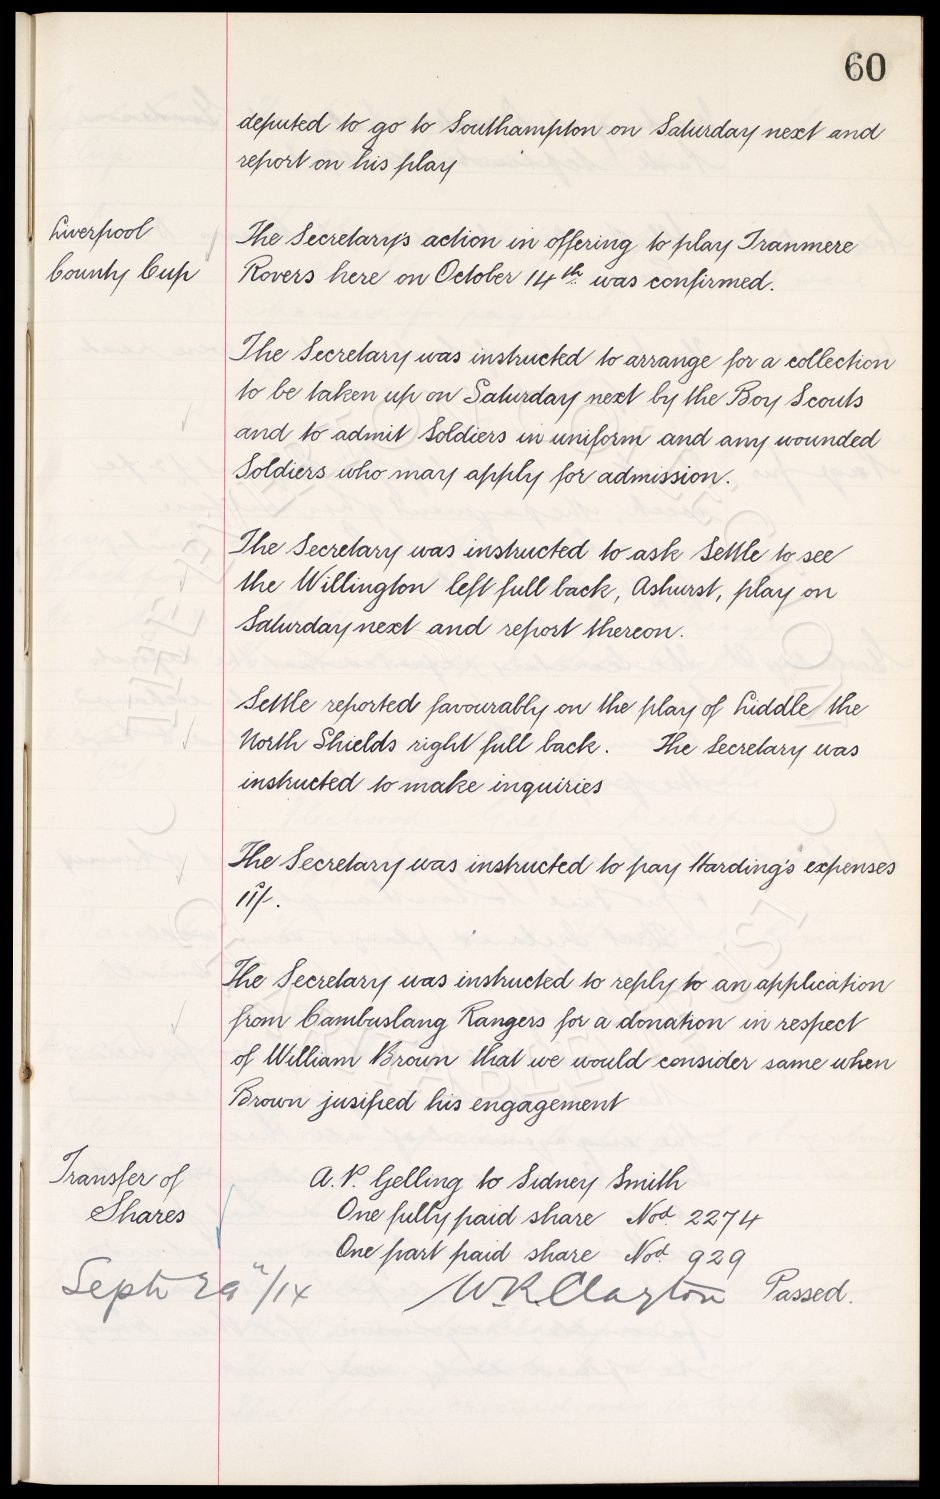 60
deputed to go to Southampton on Saturday next and
report on his play
Liverpool
County Cup
The Secretary's action in offering to play Tranmere
Rovers here on October 14th was confirmed.
The Secretary was instructed to arrange for a collection
to be taken up on Saturday next by the Boy Scouts
and to admit Soldiers in uniform and any wounded
Soldiers who may apply for admission.
The Secretary was instructed to ask Settle to see
the Willington left full back, Ashurst, play on
Saturday next and report thereon.
Settle reported favourably on the play of Liddle the
North Shields right full back. The Secretary was
instructed to make inquiries
The Secretary was instructed to pay Harding's expenses
11/-.
The Secretary was instructed to reply to an application
from Cambuslang Rangers for a donation in respect
of William Brown that we would consider same when
Brown jusified his engagement
Transfer of
Shares
A. P. Gelling to Sidney Smith
One fully paid share Nod. 2274
One part paid share Nod. 929
Sept 29"/14 W.R. Clayton Passed.